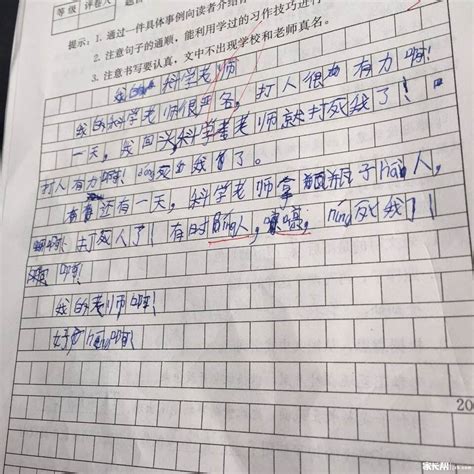 等级 评卷人 题目
提示：1. 通过一件具体事例向读者介绍
2. 注意句子的通顺，能利用学过的习作技巧进行
3. 注意书写要认真，文中不出现学校和老师真名。
我的科学老师
我的科学老师很严名，打人很力有力啊！
一天，我回头科学老师就打死我了！
打人有力啊！ 死我了。
还有一天，科学老师拿 子hai人，
啊！打死人了！有时 人，嚎嚎，níng死我了！
啊！
我的老师啊！
好 啊！
20
家长帮